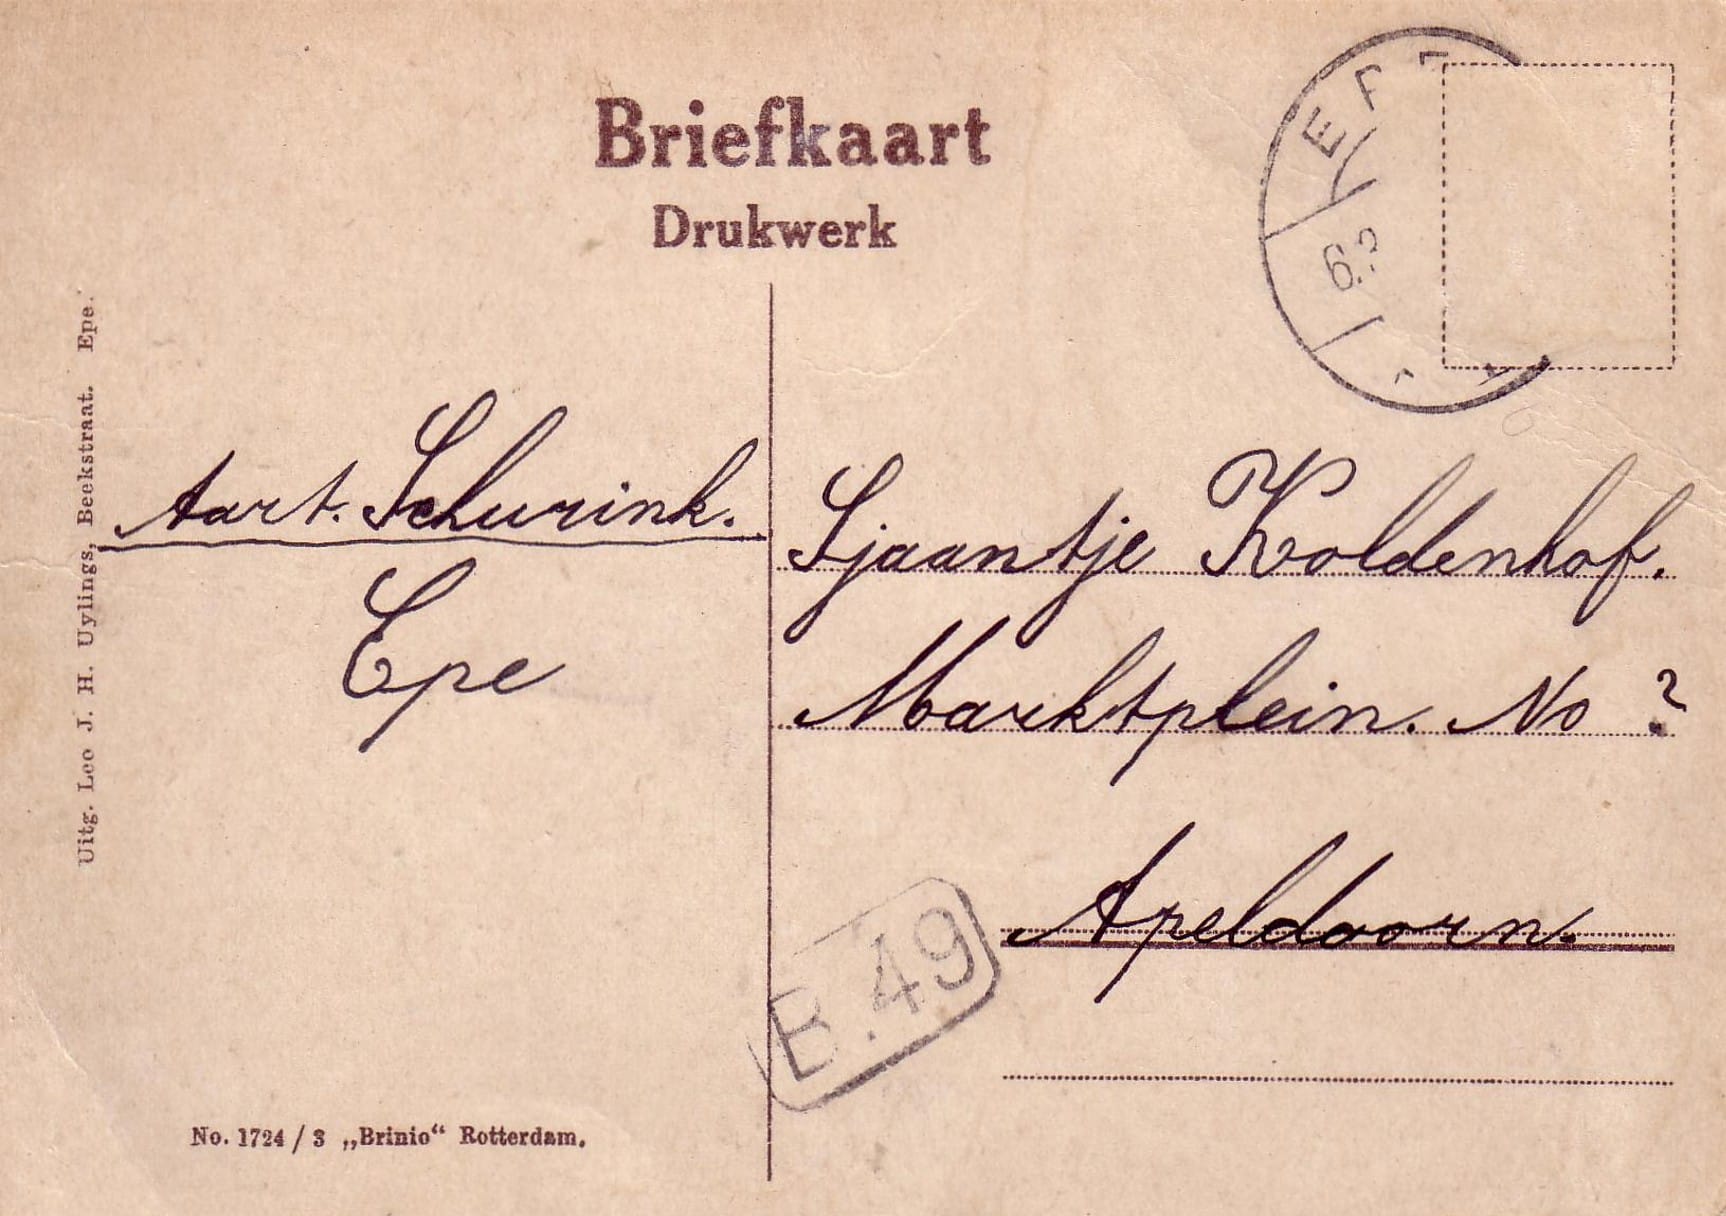 Briefkaart
Drukwerk
Uitg. Leo J. H. Uylings, Beekstraat. Epe.
Aart. Schurink.
Epe
Sjaantje Koldenhof.
Marktplein. No ?
Apeldoorn.
B.49
No. 1724 / 3 „Brinio“ Rotterdam.